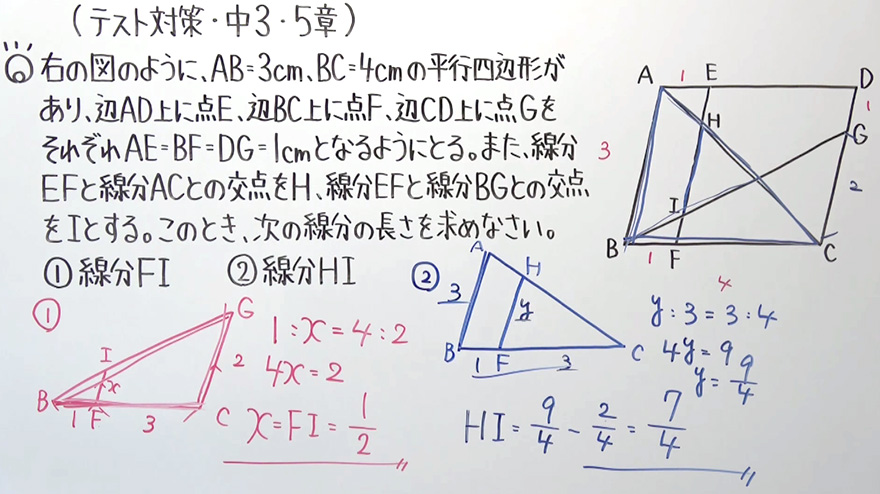 (テスト対策・中3・5章)
⑥ 右の図のように、AB=3cm、BC=4cmの平行四辺形が
あり、辺AD上に点E、辺BC上に点F、辺CD上に点Gを
それぞれAE=BF=DG=1cmとなるようにとる。また、線分
EFと線分ACとの交点をH、線分EFと線分BGとの交点
をIとする。このとき、次の線分の長さを求めなさい。
①線分FI ②線分HI
A 1 E D
1
H G
3
2
I
B 1 F C
4
①
G
I x 2
B 1 F 3 C
1:x=4:2
4x=2
x=FI=1/2
②
A
H
3 y
B 1 F 3 C
y:3=3:4
4y=9
y=9/4
HI=9/4-2/4=7/4